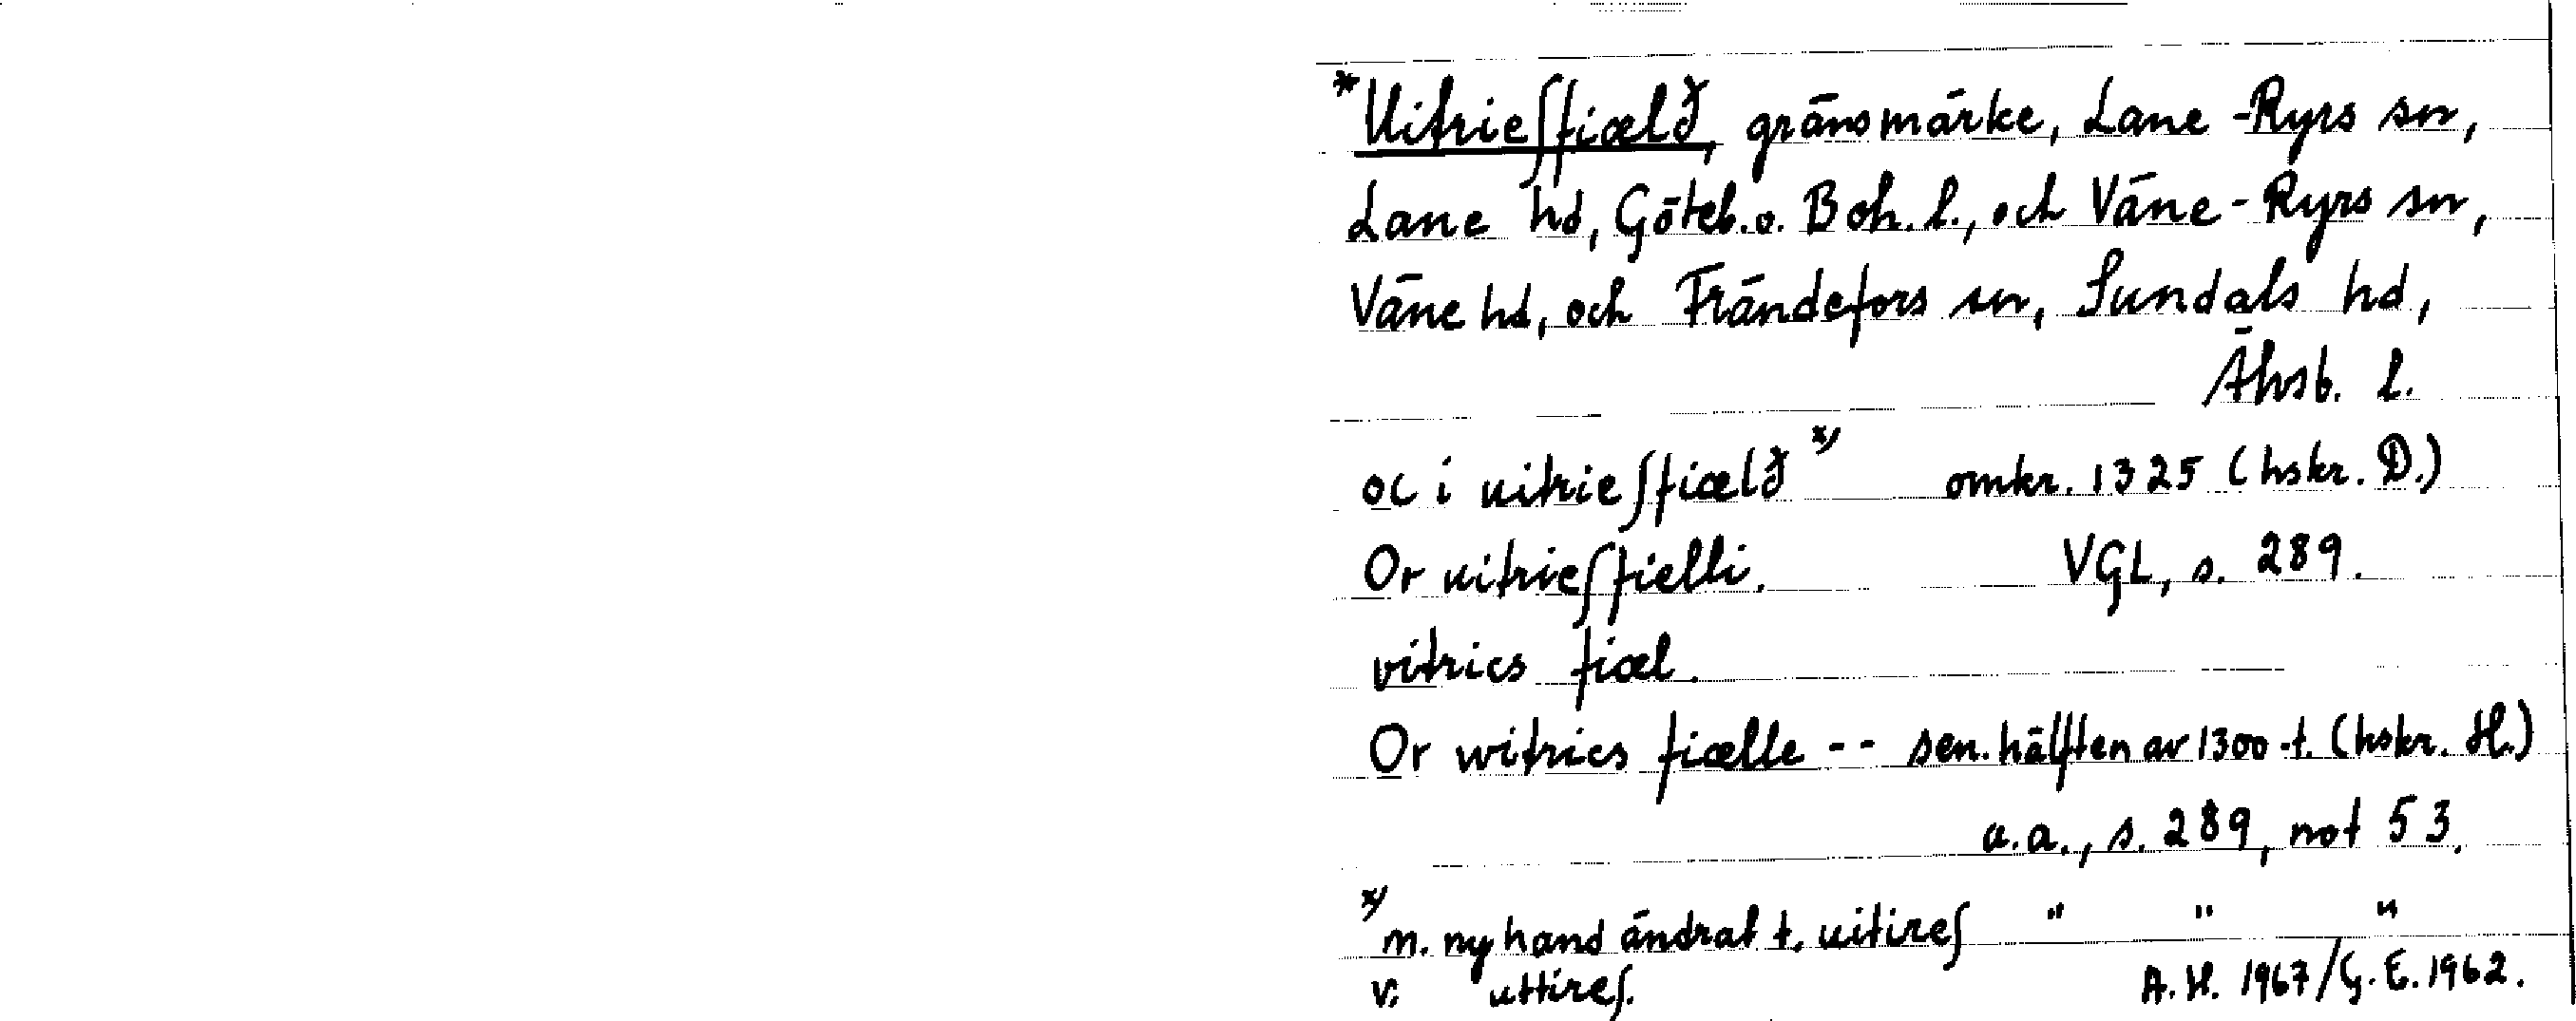 *Uitrieſfiælð, gränsmärke, Lane-Ryrs sn,
Lane hd, Göteb. o. Boh. l., och Väne-Ryrs sn,
Väne hd, och Frändefors sn, Sundals hd,
Älvsb. l.
oc i uitrieſfiælð x) omkr. 1325 (hskr. D.)
Or uitrieſfielli. VGL, s. 289.
vitrics fiæl.
Or witrics fiælle -- sen. hälften av 1300-t. (hskr. H.)
a.a., s. 289, not 53.
x) m. ny hand ändrat t. uitireſ " " "
v. uttireſ. A.H. 1967/G.E. 1962.